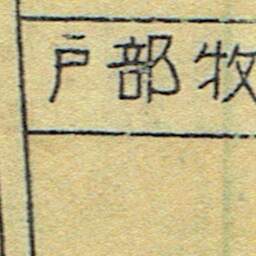 戸部牧